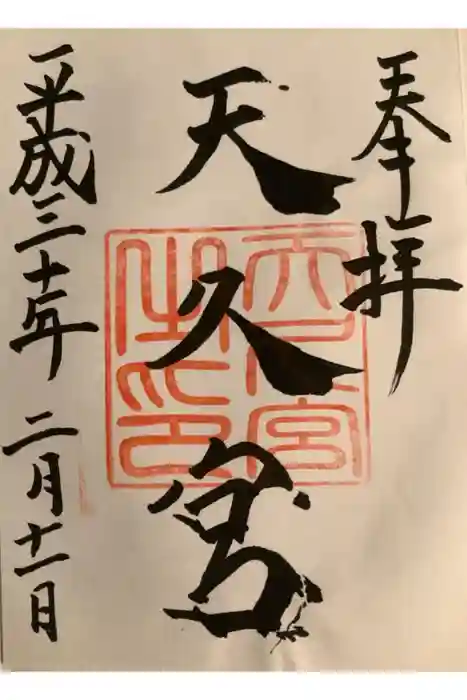 奉拝
天久宮
平成三十年 二月十一日
天久宮之印